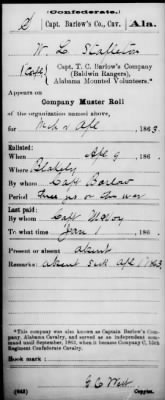 (Confederate.)
S Capt. Barlow's Co., Cav. Ala.
W. L. Stallcton
Capt. T. C. Barlow's Company
(Baldwin Rangers),
Alabama Mounted Volunteers.*
Appears on
Company Muster Roll
of the organization named above,
for Mch & Apl, 1863.
Enlisted:
When Apl 9, 186 .
Where Blakely
By whom Capt Barlow
Period three yrs or the war
Last paid:
By whom Capt
To what time Jan 1, 186 .
Present or absent absent
Remarks: absent sick Apl 17 1863
*This company was also known as Captain Barlow's Company, Alabama Cavalry, and served as an independent command until September, 1863, when it became Company C, 15th Regiment Confederate Cavalry.
Book mark:
(642)
Copyist.